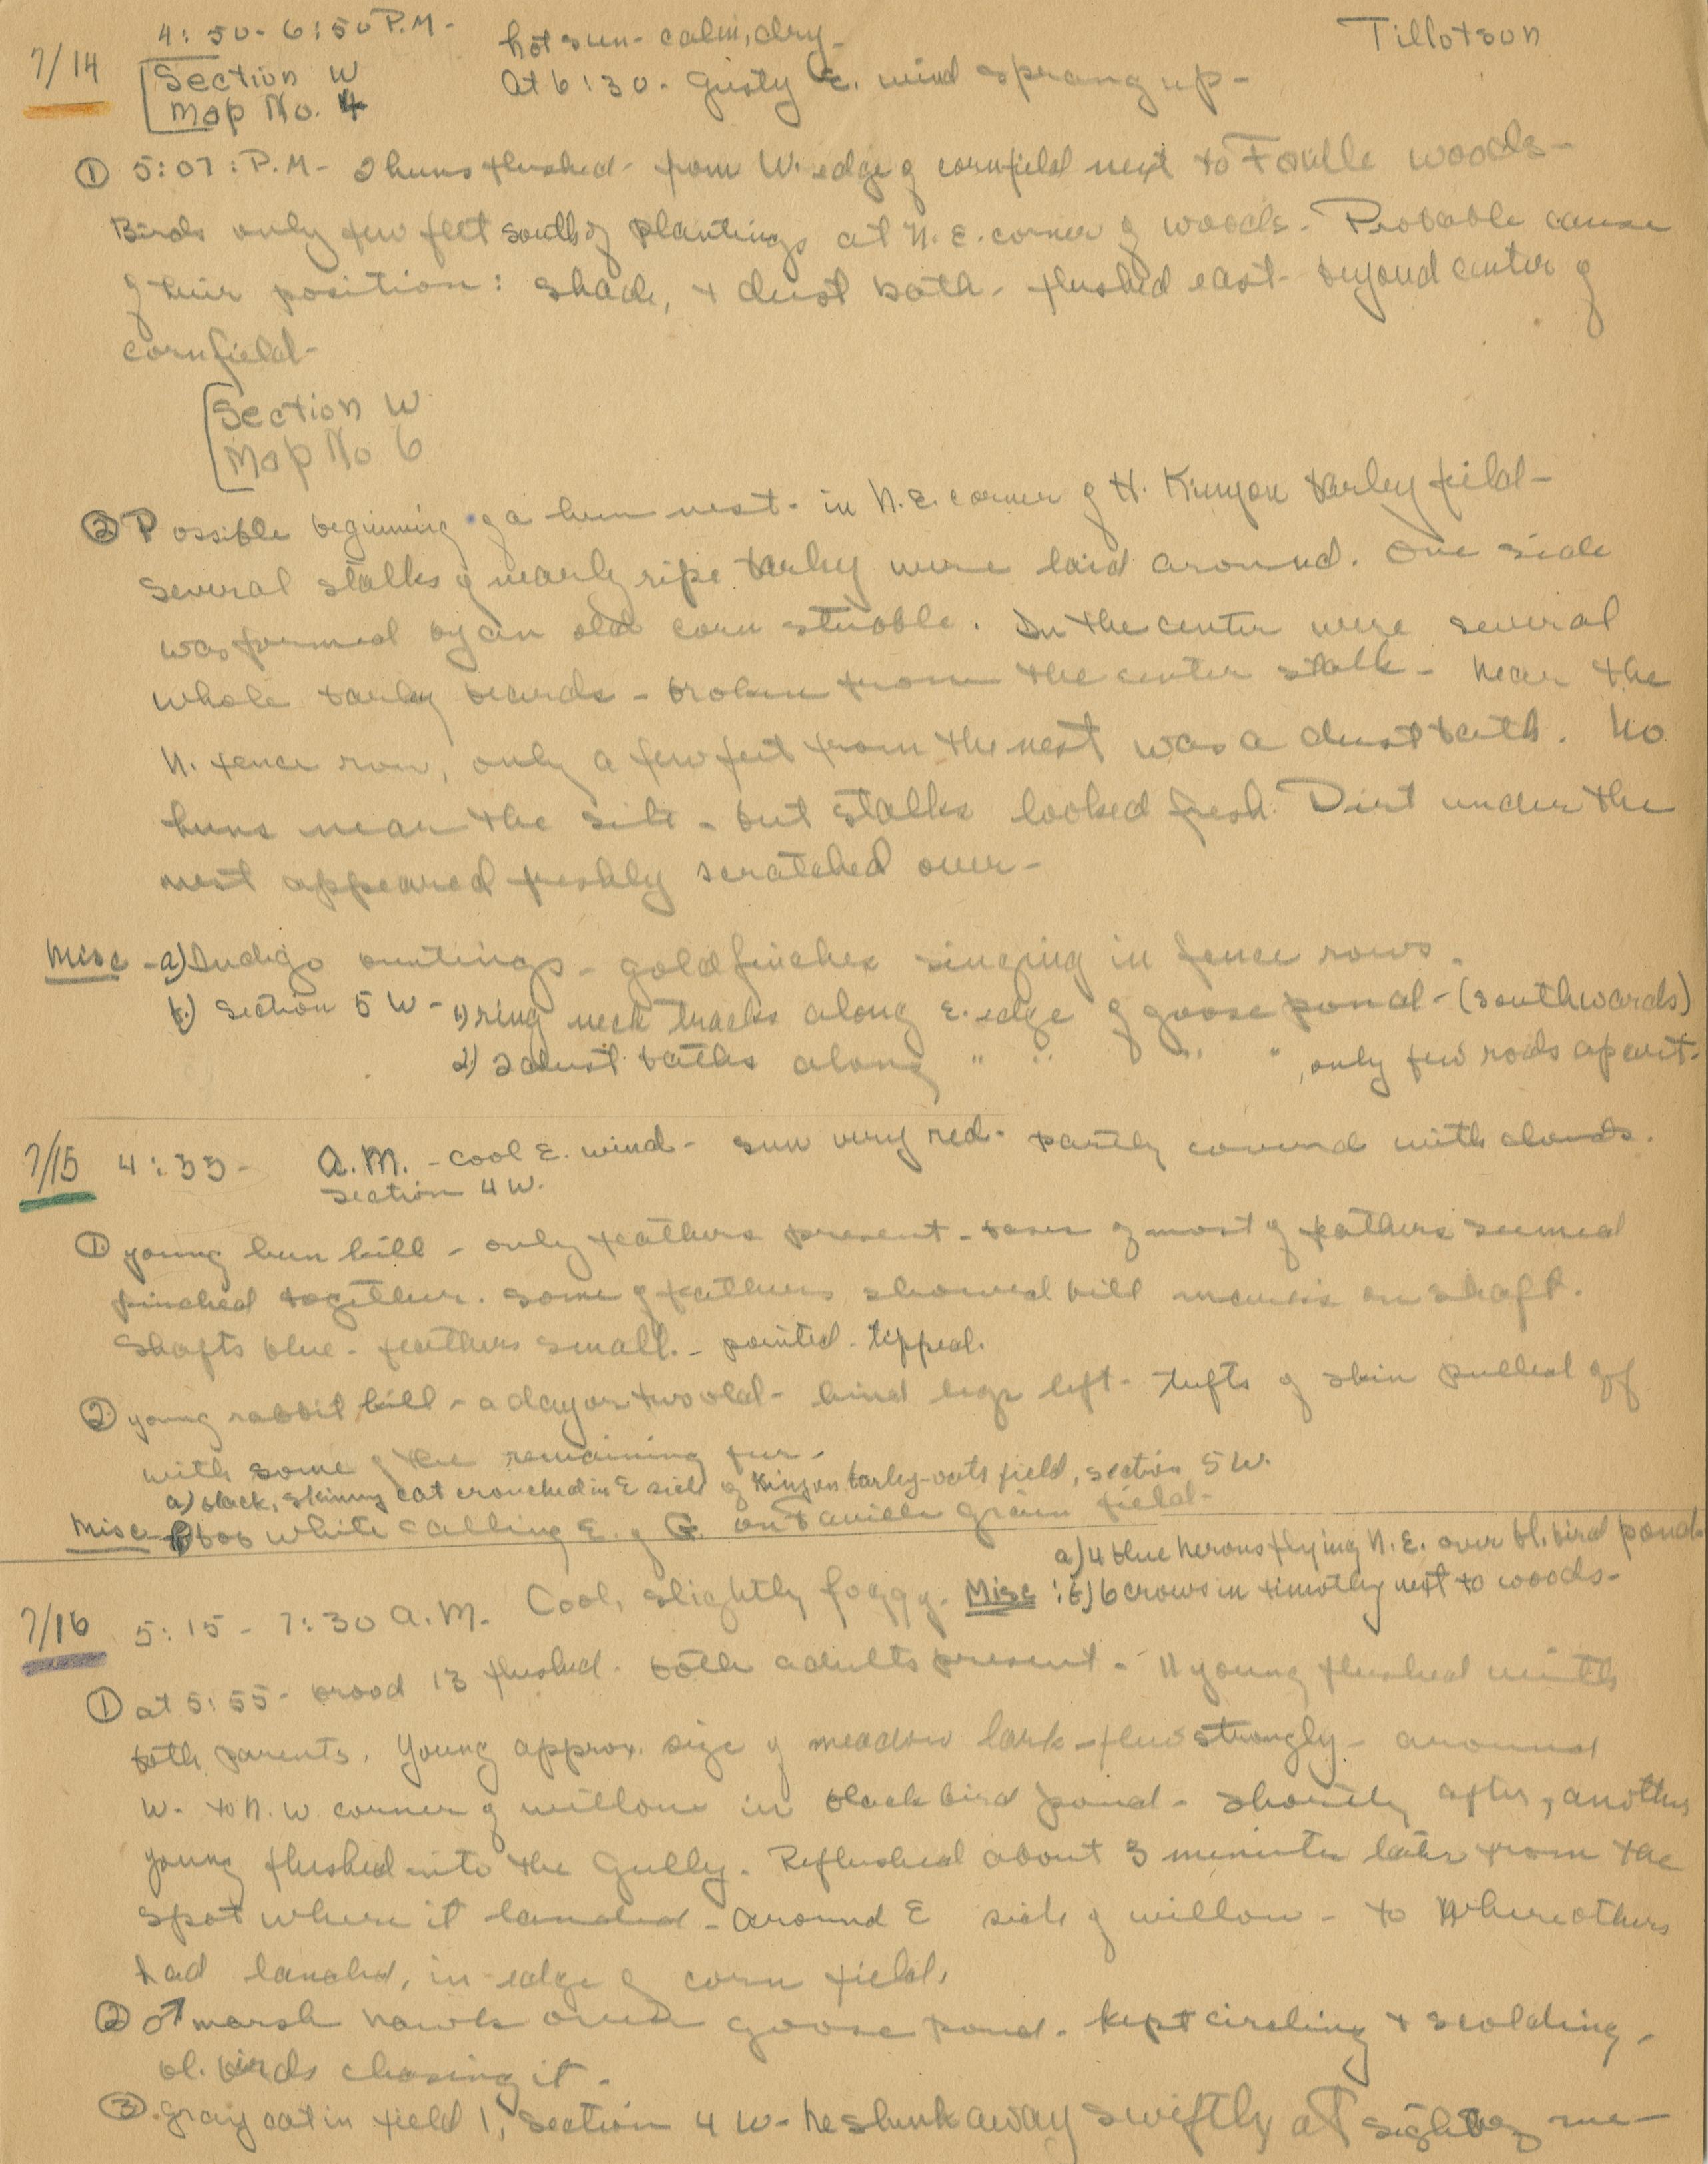 4:50-6:50 P.M-
hot sun- calm, dry-
Tillotson
7/14
Section W
Map No. 4
At 6:30- Gusty E. wind sprang up-
① 5:07: P.M- 2 huns flushed- from W. edge of cornfield next to Faville woods-
Birds only few feet south of plantings at N.E. corner of woods. Probable cause
of their position: shade, + dust bath- flushed east- beyond center of
cornfield-
Section W
Map No 6
② Possible beginning of a hun nest- in N.E. corner of H. Kinyon barley field-
Several stalks of nearly ripe barley were laid around. One side
was formed by an old corn stubble. In the center were several
whole barley beards - broken from the center stalk- Near the
N. fence row, only a few feet from the nest was a dust bath. No
huns near the site - but stalks looked fresh. Dirt under the
nest appeared freshly scratched over-
Misc - a) Indigo buntings - goldfinches singing in fence rows.
b.) Section 5 W - 1) ring neck tracks along E. edge of goose pond - (southwards)
2) 2 dust baths along " " " " , only few rods apart-
7/15 4:35- A.M. - cool E. wind- sun very red- partly covered with clouds.
Section 4 W.
① young hun kill - only feathers present - bases of most of feathers seemed
pinched together. Some of feathers showed bill marks on shaft.
Shafts blue- feathers small.- pointed- tipped.
② young rabbit kill - a day or two old- hind legs left- tufts of skin pulled off
with some of the remaining fur-
a) black, skinny cat crouched in E side of Kinyon barley-oats field, section 5 W.
Misc bob white calling E. of G. on Faville grain field-
a) 4 blue herons flying N.E. over bl. bird pond-
7/16 5:15 - 7:30 A.M. Cool, slightly foggy. Misc: b) 6 crows in timothy next to woods-
① at 5:55- brood 13 flushed. both adults present - 11 young flushed with
both parents. Young approx. size of meadow lark - flew strongly - around
W. to N.W. corner of willow in black bird pond- Shortly after, another
young flushed into the Gully. Reflushed about 3 minutes later from the
spot where it landed - around E side of willow - to where others
had landed, in edge of corn field.
② ♂ marsh hawk over goose pond- kept circling + scolding-
bl. birds chasing it-
③ gray cat in field 1, Section 4 W- he slunk away swiftly at sight of me-